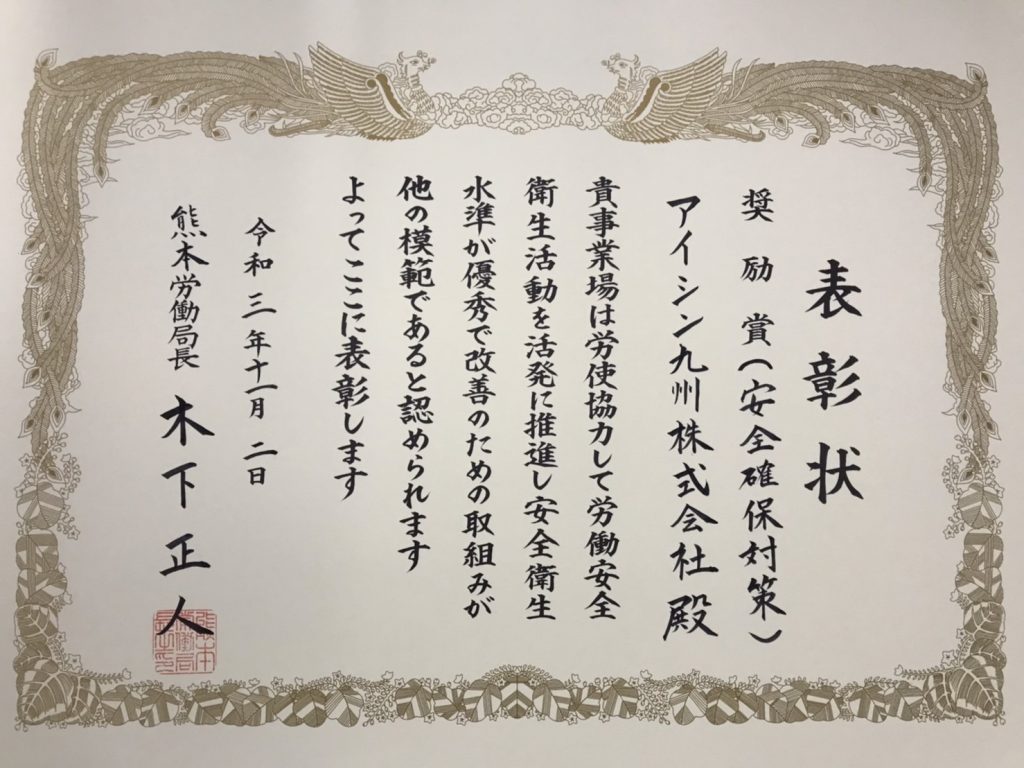 表彰状
奨励賞（安全確保対策）
アイシン九州株式会社殿
貴事業場は労使協力して労働安全
衛生活動を活発に推進し安全衛生
水準が優秀で改善のための取組みが
他の模範であると認められます
よってここに表彰します
令和三年十一月二日
熊本労働局長 木下正人